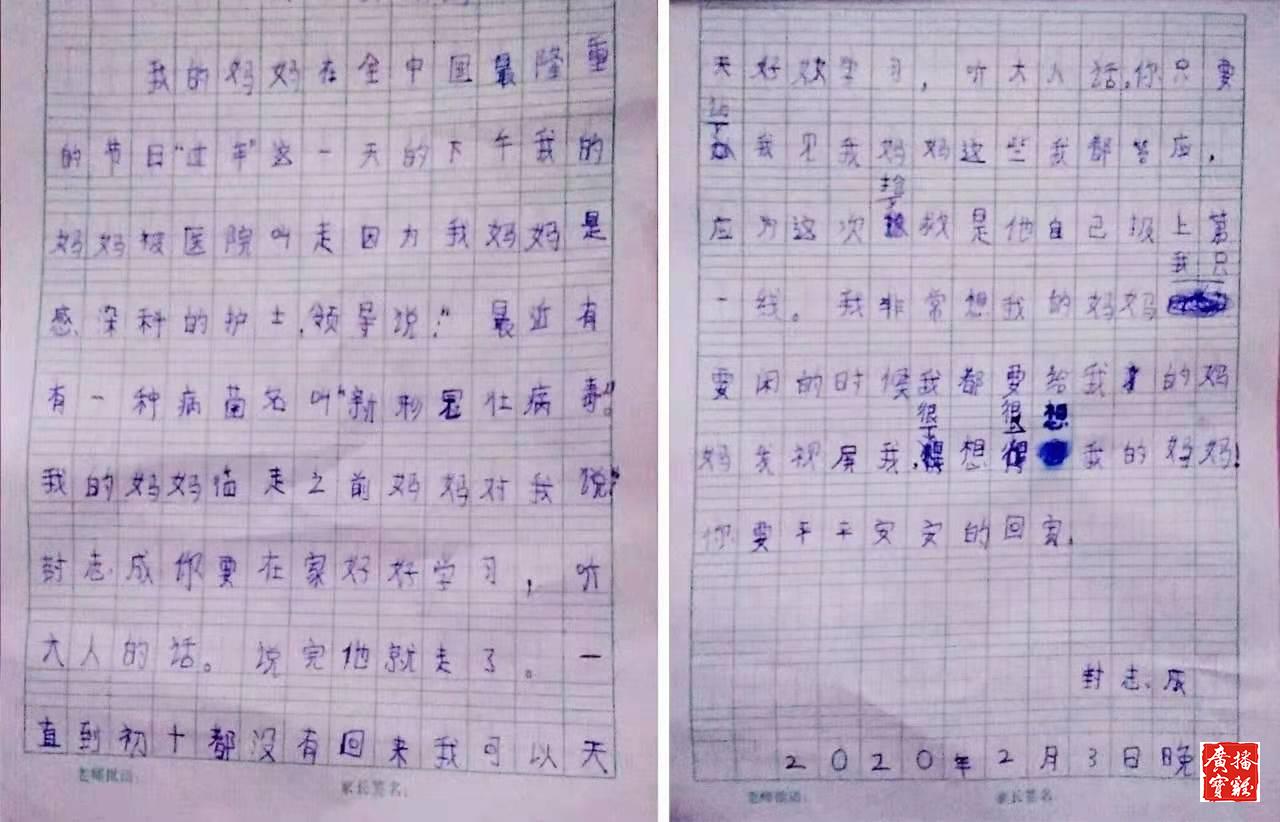 我的妈妈在全中国最隆重
的节日“过年”这一天的下午我的
妈妈被医院叫走因为我妈妈是
感染科的护士,领导说:“最近有
有一种病菌名叫“新形冠壮病毒”。
我的妈妈临走之前妈妈对我说“
封志成你要在家好好学习,听
大人的话。说完他就走了。一
直到初十都没有回来我可以天
老师批语:
家长签名:
天好好学习,听大人话,你只要
让
我见我妈妈这些我都答应,
应为这次 救是他自己报上第
我只
一线。我非常想我的妈妈
要闲的时候我都要给我的妈
很 很 想
妈发视屏我,想 我的妈妈!
你要平平安安的回家。
封志成
2020年2月3日晚
老师批语:
家长签名
廣播
寶雞